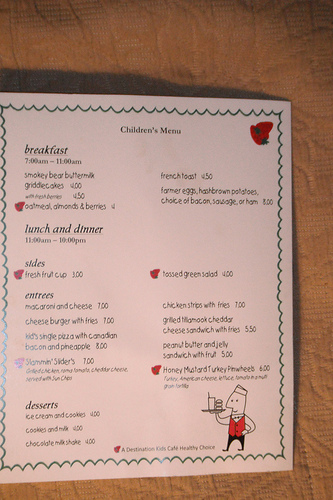 Children's Menu
breakfast
7:00am – 11:00am
smokey bear buttermilk
griddlecakes 4.00
with fresh berries 4.50
oatmeal, almonds & berries 4
french toast 4.50
farmer eggs, hashbrown potatoes,
choice of bacon, sausage, or ham 8.00
lunch and dinner
11:00am – 10:00pm
sides
fresh fruit cup 3.00
tossed green salad 4.00
entrees
macaroni and cheese 7.00
cheese burger with fries 7.00
kid's single pizza with canadian
bacon and pineapple 8.00
Slammin' Slider's 7.00
Grilled chicken, roma tomato, cheddar cheese,
served with Sun Chips
chicken strips with fries 7.00
grilled tillamook cheddar
cheese sandwich with fries 5.50
peanut butter and jelly
sandwich with fruit 5.00
Honey Mustard Turkey Pinwheels 6.00
Turkey, American cheese, lettuce, tomato in a multi
grain tortilla
desserts
ice cream and cookies 4.00
cookies and milk 4.00
chocolate milk shake 4.00
A Destination Kids Café Healthy Choice